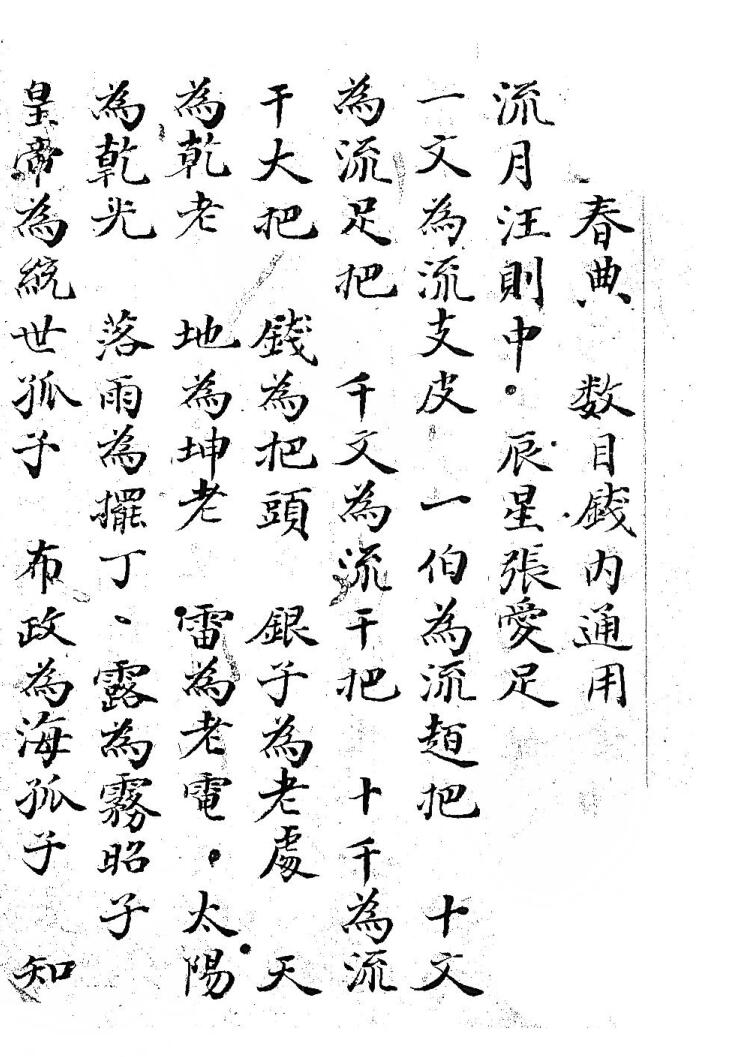 春典　数目錢内通用
流月汪則中。辰星張愛足
一文為流支皮　一伯為流趄把　十文
為流足把　千文為流干把　十千為流
干大把　錢為把頭　銀子為老處　天
為乾老　地為坤老　雷為老電。太陽
為乾光　落雨為擺丁、露為霧昭子
皇帝為統世孤子　布政為海孤子　知